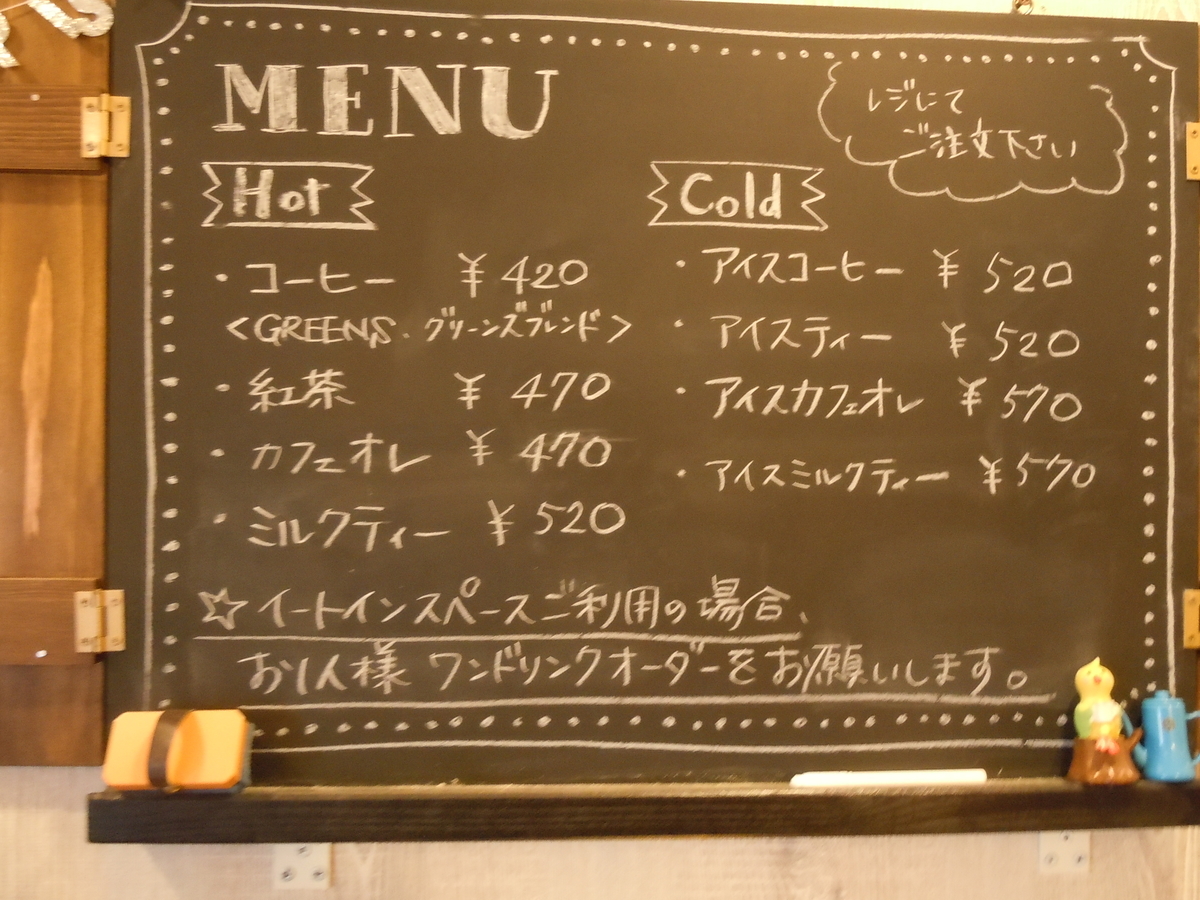 MENU
レジにて
ご注文下さい
Hot
・コーヒー ¥420
<GREENS.グリーンズブレンド>
・紅茶 ¥470
・カフェオレ ¥470
・ミルクティー ¥520
Cold
・アイスコーヒー ¥520
・アイスティー ¥520
・アイスカフェオレ ¥570
・アイスミルクティー ¥570
☆イートインスペースご利用の場合、
お1人様 ワンドリンクオーダーをお願いします。